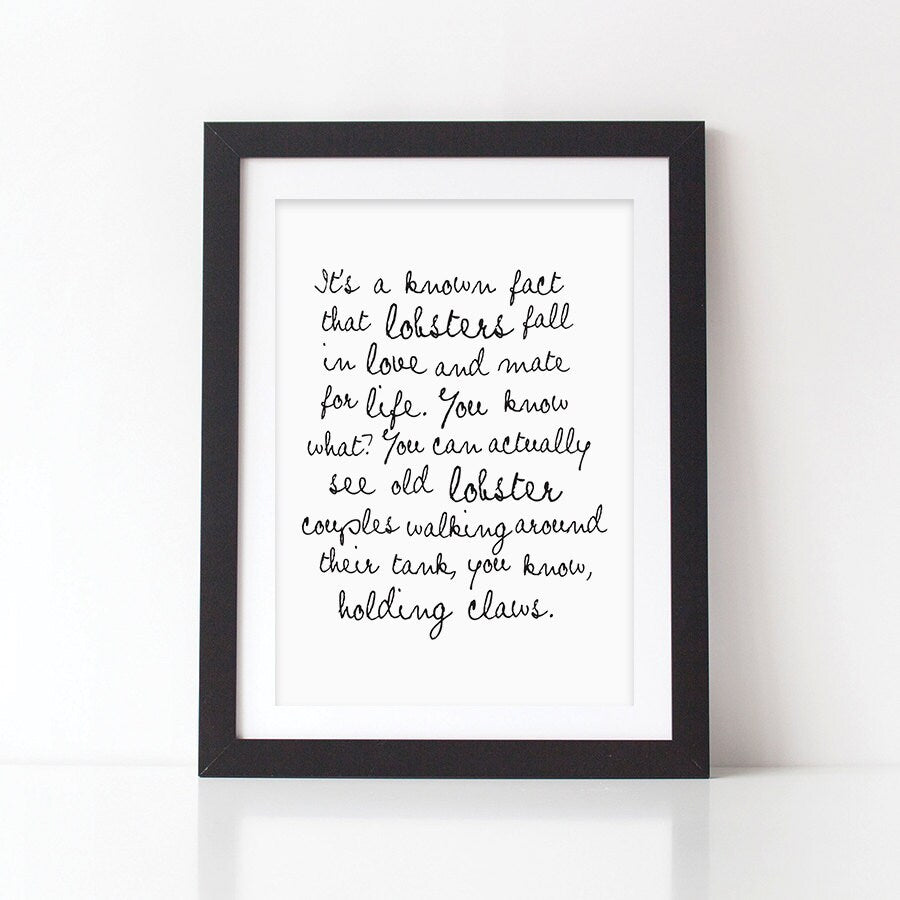 It's a known fact
that lobsters fall
in love and mate
for life. You know
what? You can actually
see old lobster
couples walking around
their tank, you know,
holding claws.